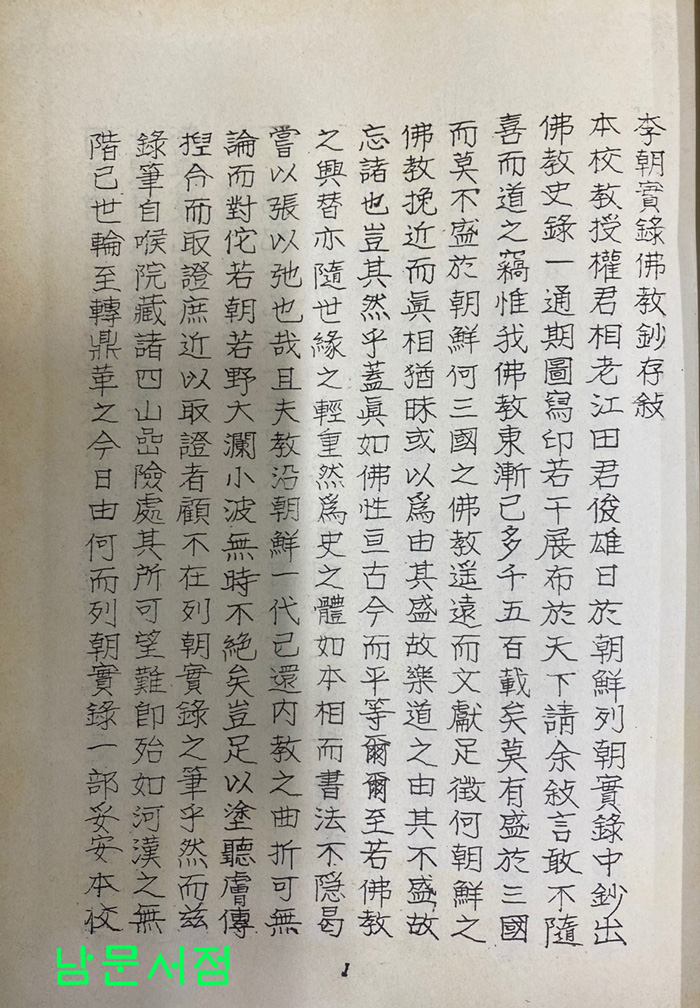 李朝實錄佛教鈔存敍
本校教授權君相老江田君俊雄日於朝鮮列朝實錄中鈔出
佛教史錄一通期圖寫印若干展布於天下請余敍言敢不隨
喜而道之竊惟我佛教東漸已多千五百載矣莫有盛於三國
而莫不盛於朝鮮何三國之佛教遥遠而文獻足徵何朝鮮之
佛教挽近而眞相猶昧或以爲由其盛故樂道之由其不盛故
忘諸也豈其然乎蓋眞如佛性亘古今而平等爾爾至若佛教
之興替亦隨世緣之輕重然爲史之體如本相而書法不隠曷
嘗以張以弛也哉且夫教沿朝鮮一代已還內教之曲折可無
論而對佗若朝若野大瀾小波無時不絶矣豈足以塗聽膚傳
揑合而取證庶近以取證者顧不在列朝實錄之筆乎然而玆
錄筆自喉院藏諸四山嵒險處其所可望難卽殆如河漢之無
階已世輪至轉鼎革之今日由何而列朝實錄一部妥安本校
1
남문서점